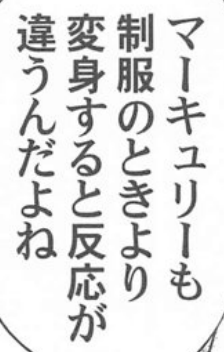 マーキュリーも
制服のときより
変身すると反応が
違うんだよね